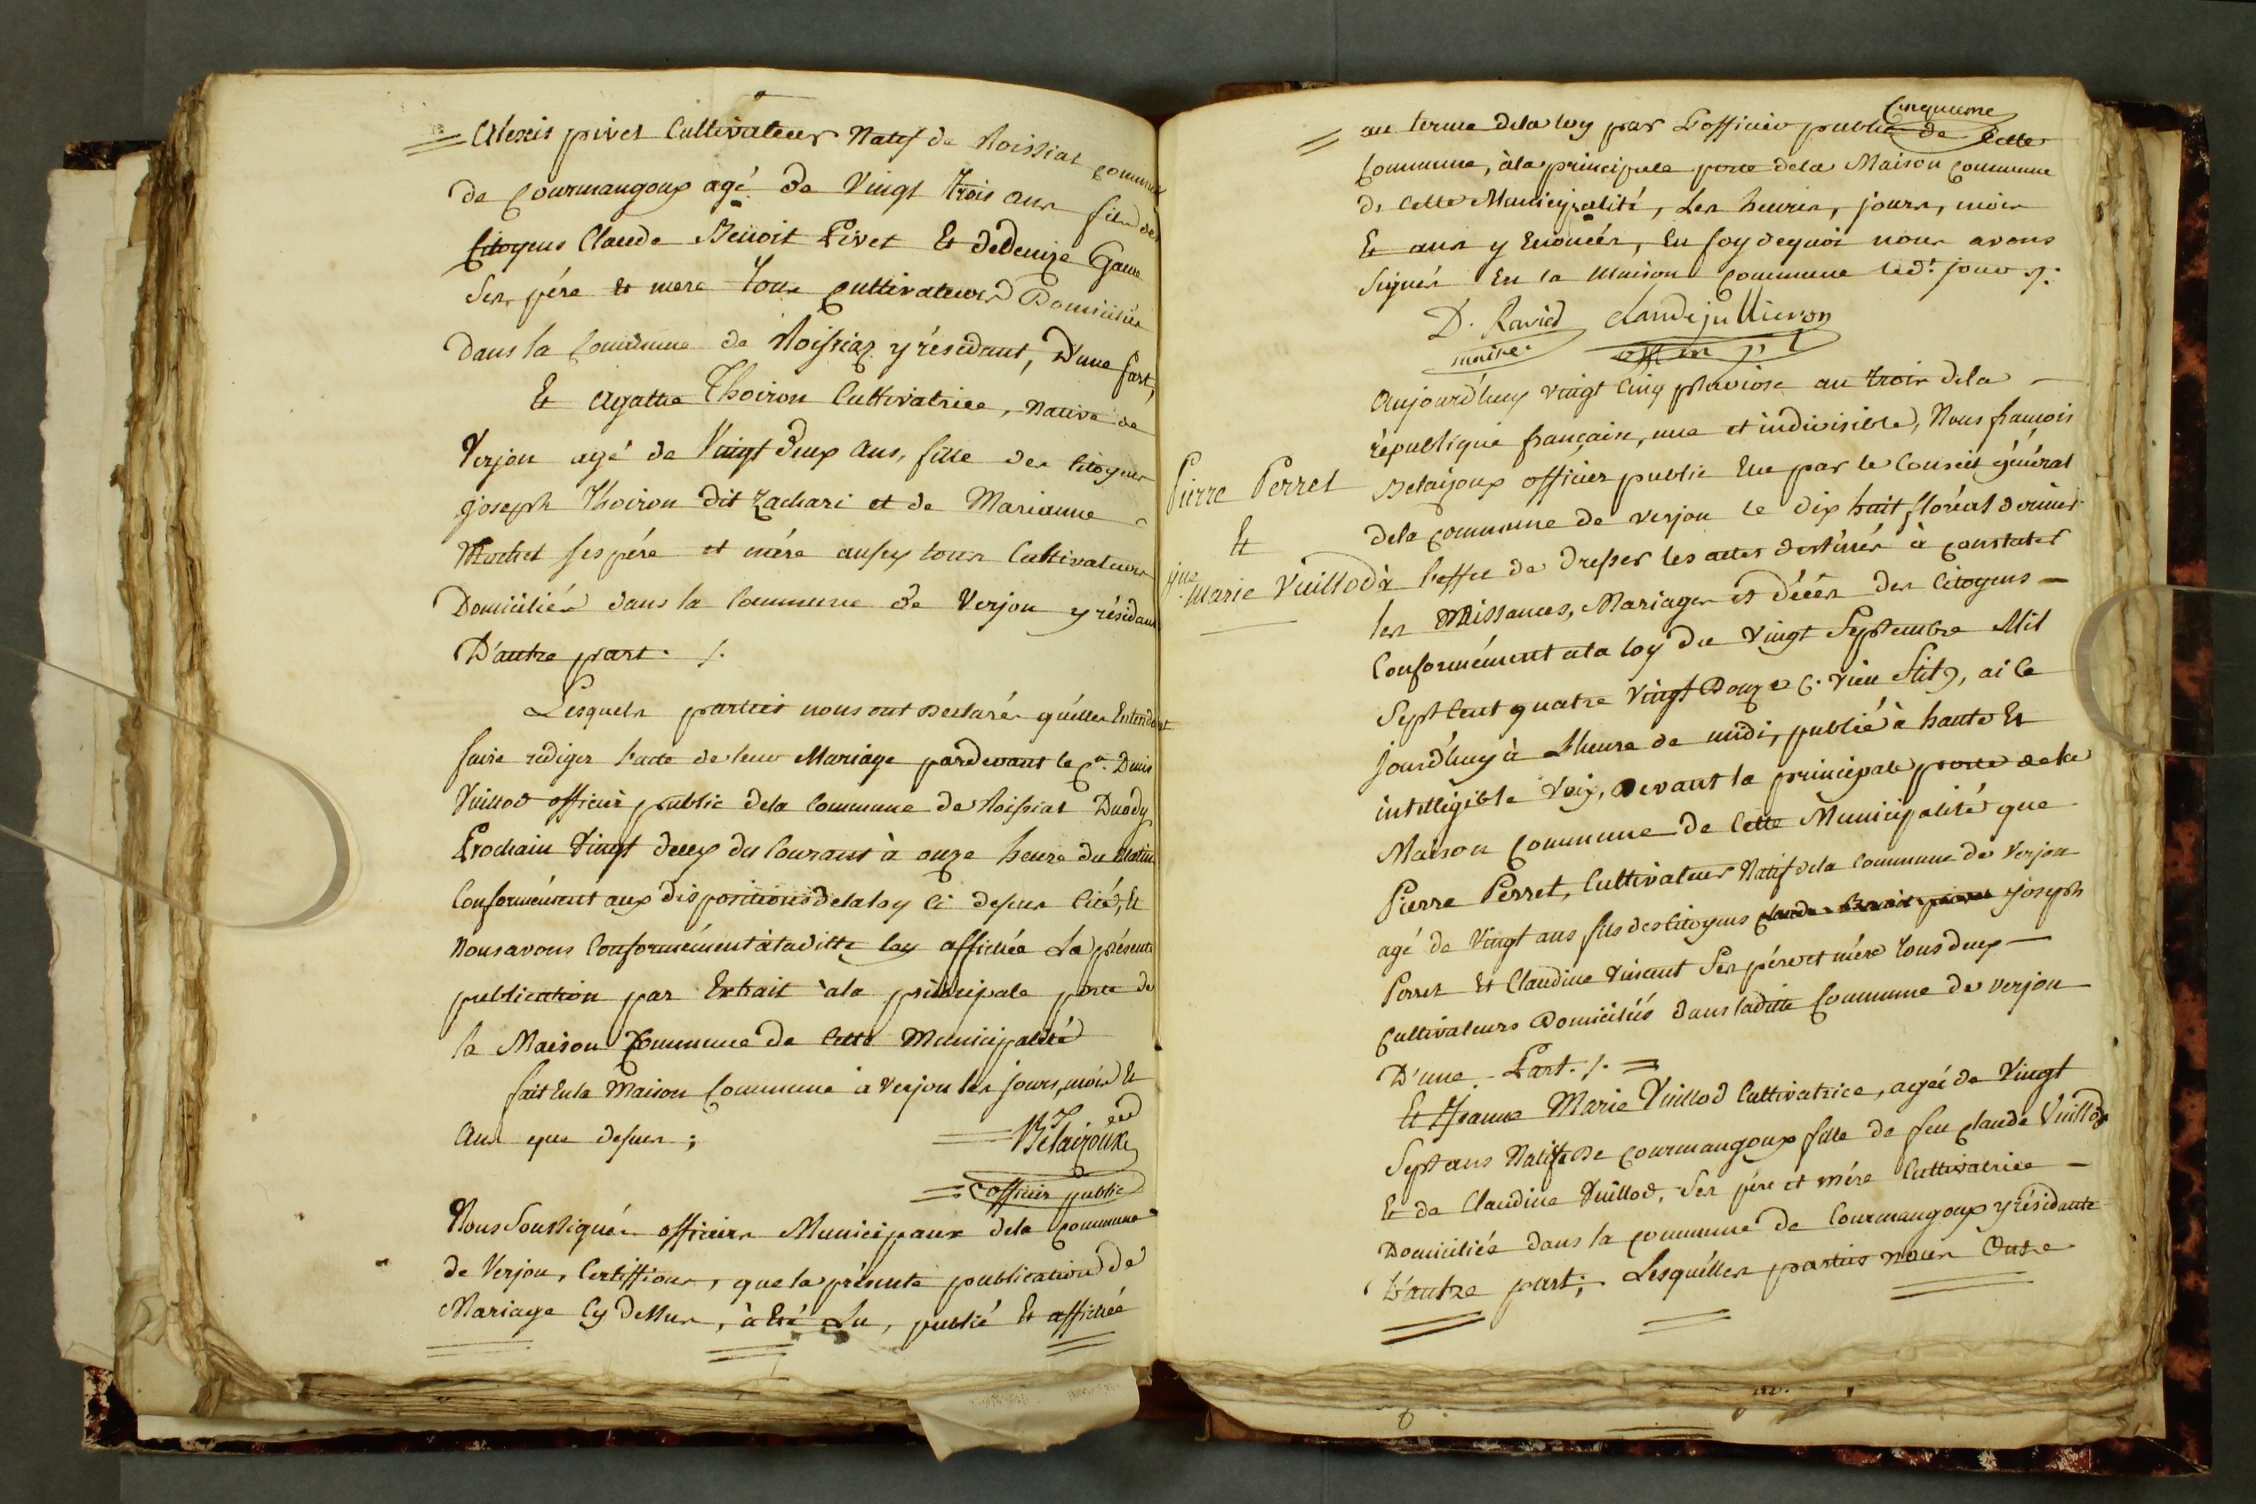 Alexis pivet Cultivateur Natif de Roissiat commune
de Courmangoux agé de Vingt trois ans fils des
Citoyens Claude Benoit Pivet Et de Denize Game
Ses pére et mere tous Cultivateurs Domiciliés
dans la Commune de Roissiaz y résidant, D'une part,
Et Agathe Thoiron Cultivatrice, Native de
Verjon agé de Vingt deux Ans, fille des Citoyens
joseph Thoiron dit Zachari et de Marianne
Mochet ses pére et mére aussy tous Cultivateurs
Domiciliés dans la Commune de Verjon y résidant
D'autre part. /.
Lesquels parties nous ont Declarés qu'elles Entendent
faire rediger l'acte de leur Mariage pardevant le Cn. Denis
Vuillod officier public dela Commune de Roissiat Duody
Prochain Vingt deux du Courant à onze heure du matin
Conformément aux dispositions dela loy Ci dessus Cité, Et
Nous avons Conformément à laditte loy affichée La présente
publication par Extrait àla principale porte de
la Maison Commune de Cette Municipalité
fait En la Maison Commune à Verjon les jours, mois Et
Ans que dessus ;
Belaijoux
officier public
Nous Soussignés officiers Municipaux dela Commune
de Verjon, Certiffions, que la présente publication de
Mariage Cy dessus, à Eté Lu, publié Et affichée
Cinquieme
au terme dela loy par L'officier public de Cette
Commune, àla principale porte dela Maison Commune
de Cette Municipalité, Les heures, jours, mois
Et ans y Enoncés, En foy dequoi nous avons
Signés En la Maison Commune Led.t jour /.
D. Ravied claude jullieron
maire. off m p l
Aujourd'huy vingt Cinq pluviose an trois dela
république française, une et indivisible, Nous françois
Belaijoux officier public Elu par le Conseil général
Pierre Perret
dela Commune de verjon le dix huit floréal dernier
Et
à l'effet de Dresser les actes destinés à Constater
jne Marie Vuillod
les Naissances, Mariages et décés des Citoyens
Conformément ala loy du Vingt Septembre Mil
Sept Cent quatre Vingt Douze (. vieu Stil), ai Ce
jourd'huy à L'heure de midi, publié à haute Et
intelligible Voix, Devant la principale porte dela
Maison Commune de Cette Municipalité que
Pierre Perret, Cultivateur Natif dela Commune de Verjon
agé de Vingt ans fils des Citoyens joseph
Perret Et Claudine Vincent Ses pére et mére tous deux
Cultivateurs Domiciliés dans laditte Commune de verjon
D'une Part. /.
Et Jeanne Marie Vuillod Cultivatrice, agée de Vingt
Sept ans Native de Courmangoux fille de feu Claude Vuillod
Et de Claudine Vuillod, Ses pére et mére Cultivatrice
Domiciliée dans la Commune de Courmangoux y résidante
D'autre part; Lesquelles parties nous Ont